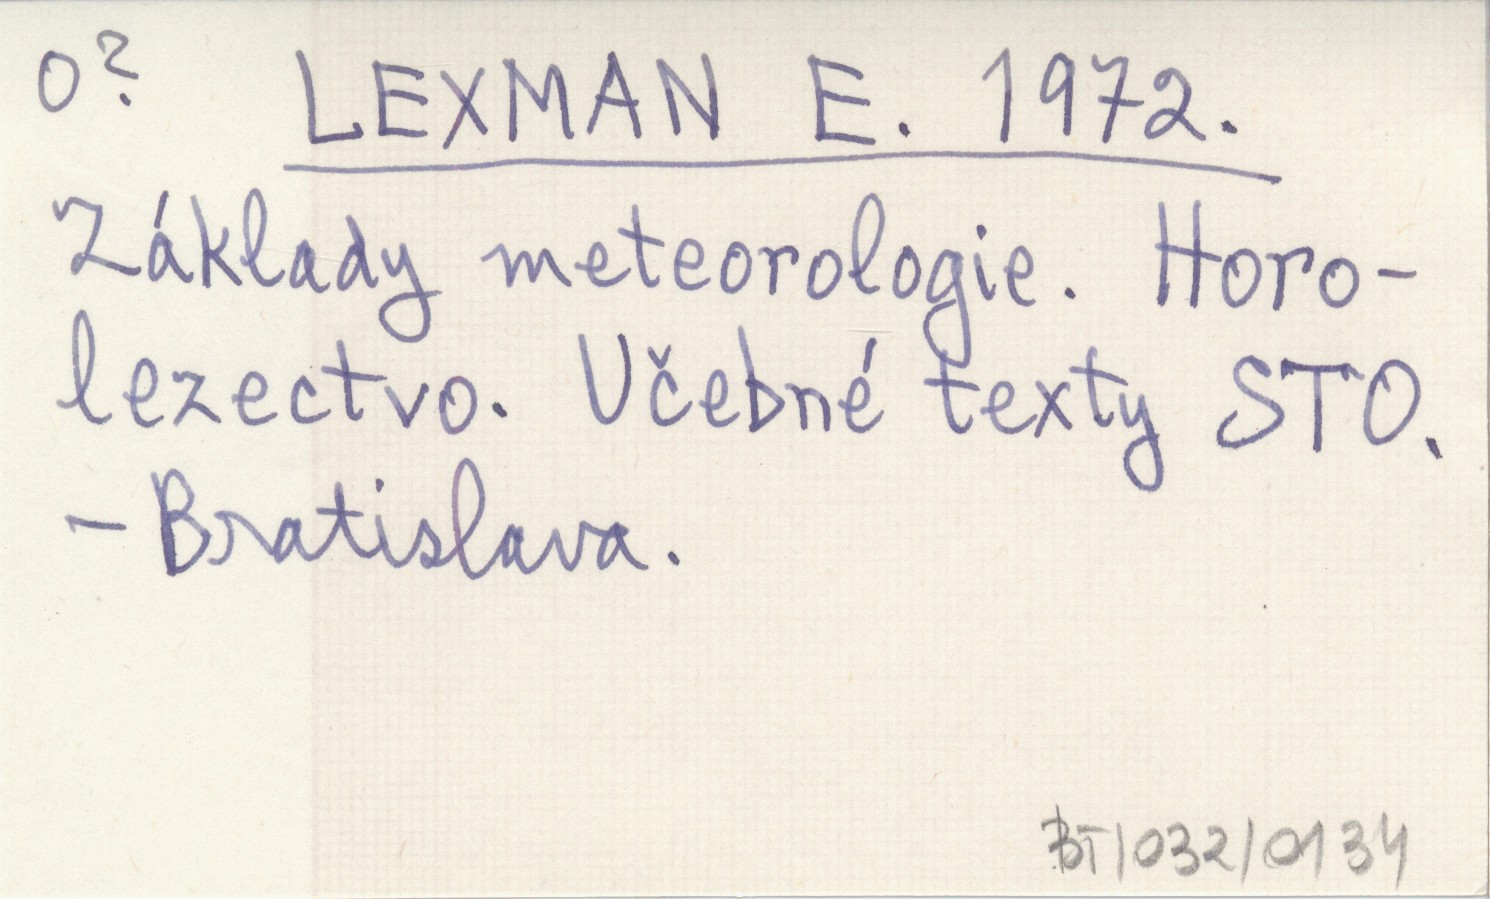 O? LEXMAN E. 1972.
Základy meteorologie. Horo-
lezectvo. Učebné texty STO.
- Bratislava.
BT/032/0134